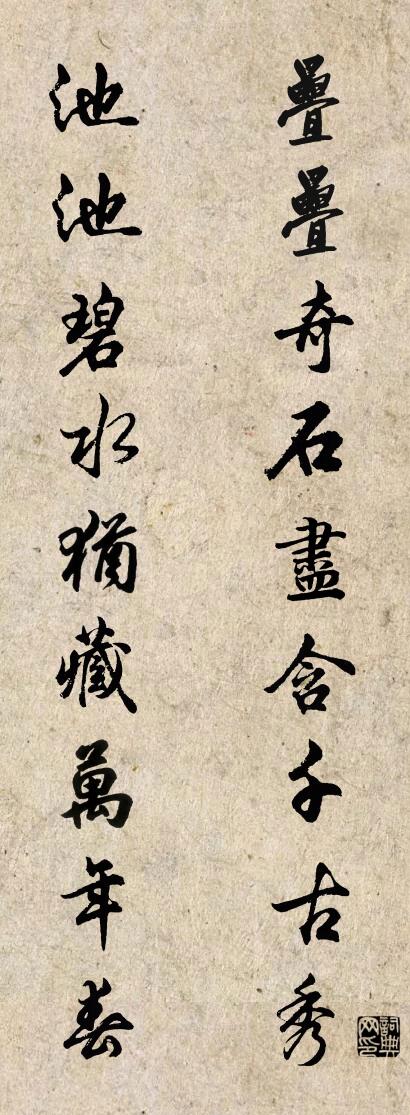 疊疊奇石盡含千古秀
池池碧水猶藏萬年春
詞典網印